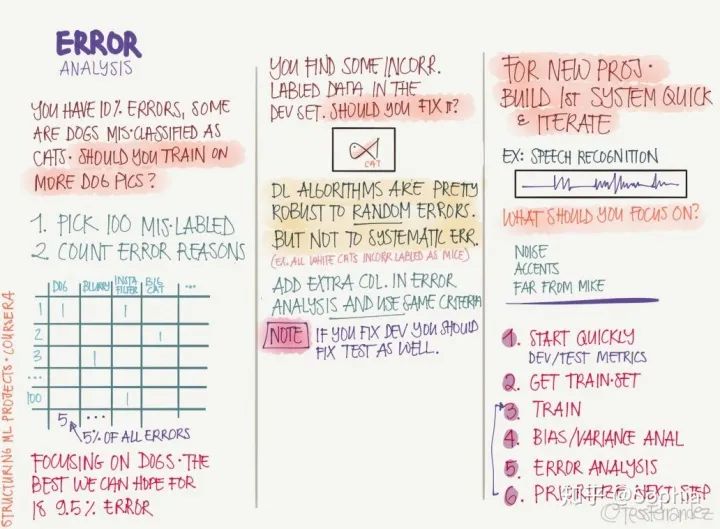 ERROR
ANALYSIS
YOU HAVE 10% ERRORS, SOME
ARE DOGS MIS-CLASSIFIED AS
CATS. SHOULD YOU TRAIN ON
MORE DOG PICS?
1. PICK 100 MIS-LABLED
2. COUNT ERROR REASONS
DOG BLURRY INSTA FILTER BIG CAT ...
1 1 1
2 1
3 1
...
100 1
5 ...
5% OF ALL ERRORS
FOCUSING ON DOGS. THE
BEST WE CAN HOPE FOR
IS 9.5% ERROR
STRUCTURING ML PROJECTS · COURSERA
YOU FIND SOME INCORR.
LABLED DATA IN THE
DEV SET. SHOULD YOU FIX IT?
CAT
DL ALGORITHMS ARE PRETTY
ROBUST TO RANDOM ERRORS.
BUT NOT TO SYSTEMATIC ERR.
(EX. ALL WHITE CATS INCORR LABLED AS MICE)
ADD EXTRA COL. IN ERROR
ANALYSIS AND USE SAME CRITERIA
NOTE IF YOU FIX DEV YOU SHOULD
FIX TEST AS WELL.
FOR NEW PROJ.
BUILD 1st SYSTEM QUICK
& ITERATE
EX: SPEECH RECOGNITION
WHAT SHOULD YOU FOCUS ON?
NOISE
ACCENTS
FAR FROM MIKE
1. START QUICKLY
DEV/TEST METRICS
2. GET TRAIN-SET
3. TRAIN
4. BIAS/VARIANCE ANAL
5. ERROR ANALYSIS
6. PRIORITIZE NEXT STEP
知乎 @Sophia
@TessFernandez